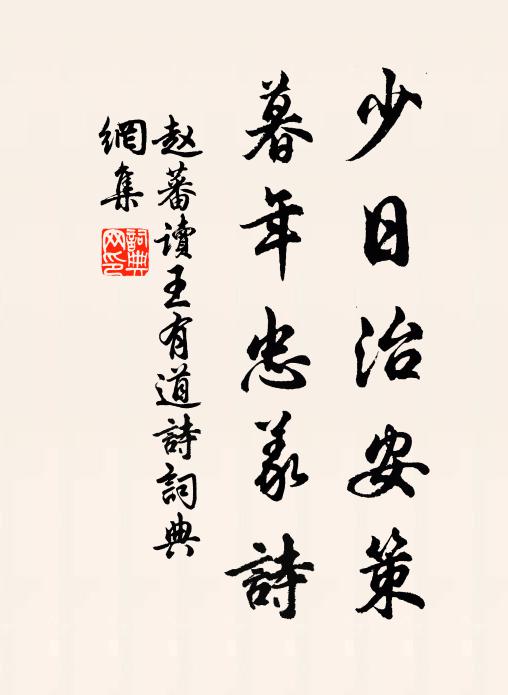 少日治安策
暮年忠義詩
赵蕃讀王有道詩詞典
網集
詞典
网印